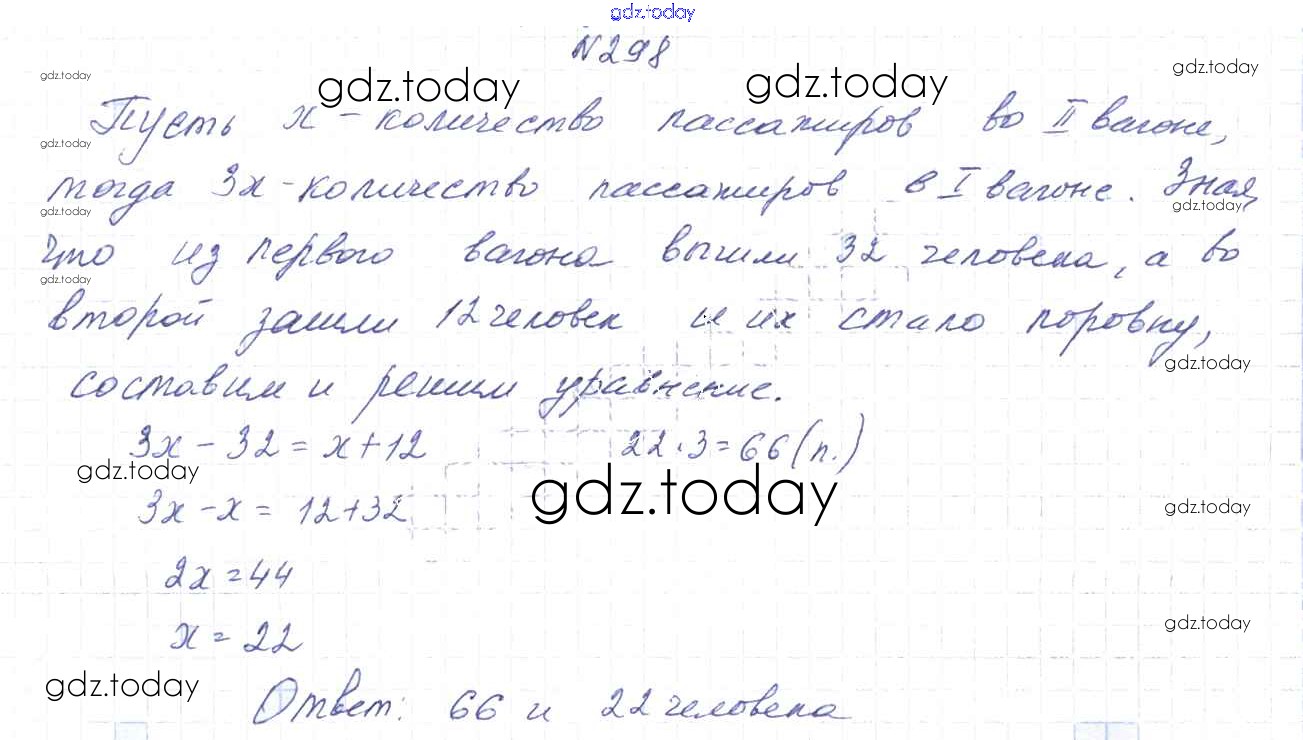 gdz.today
№298
gdz.today gdz.today gdz.today gdz.today
Пусть x - количество пассажиров во II вагоне,
gdz.today
тогда 3x - количество пассажиров в I вагоне. Зная,
gdz.today gdz.today
что из первого вагона вышли 32 человека, а во
gdz.today
второй зашли 12 человек и их стало поровну,
gdz.today
составим и решим уравнение.
3x - 32 = x + 12 22 · 3 = 66 (п.)
gdz.today gdz.today
3x - x = 12 + 32 gdz.today
2x = 44
gdz.today
x = 22
gdz.today
Ответ: 66 и 22 человека